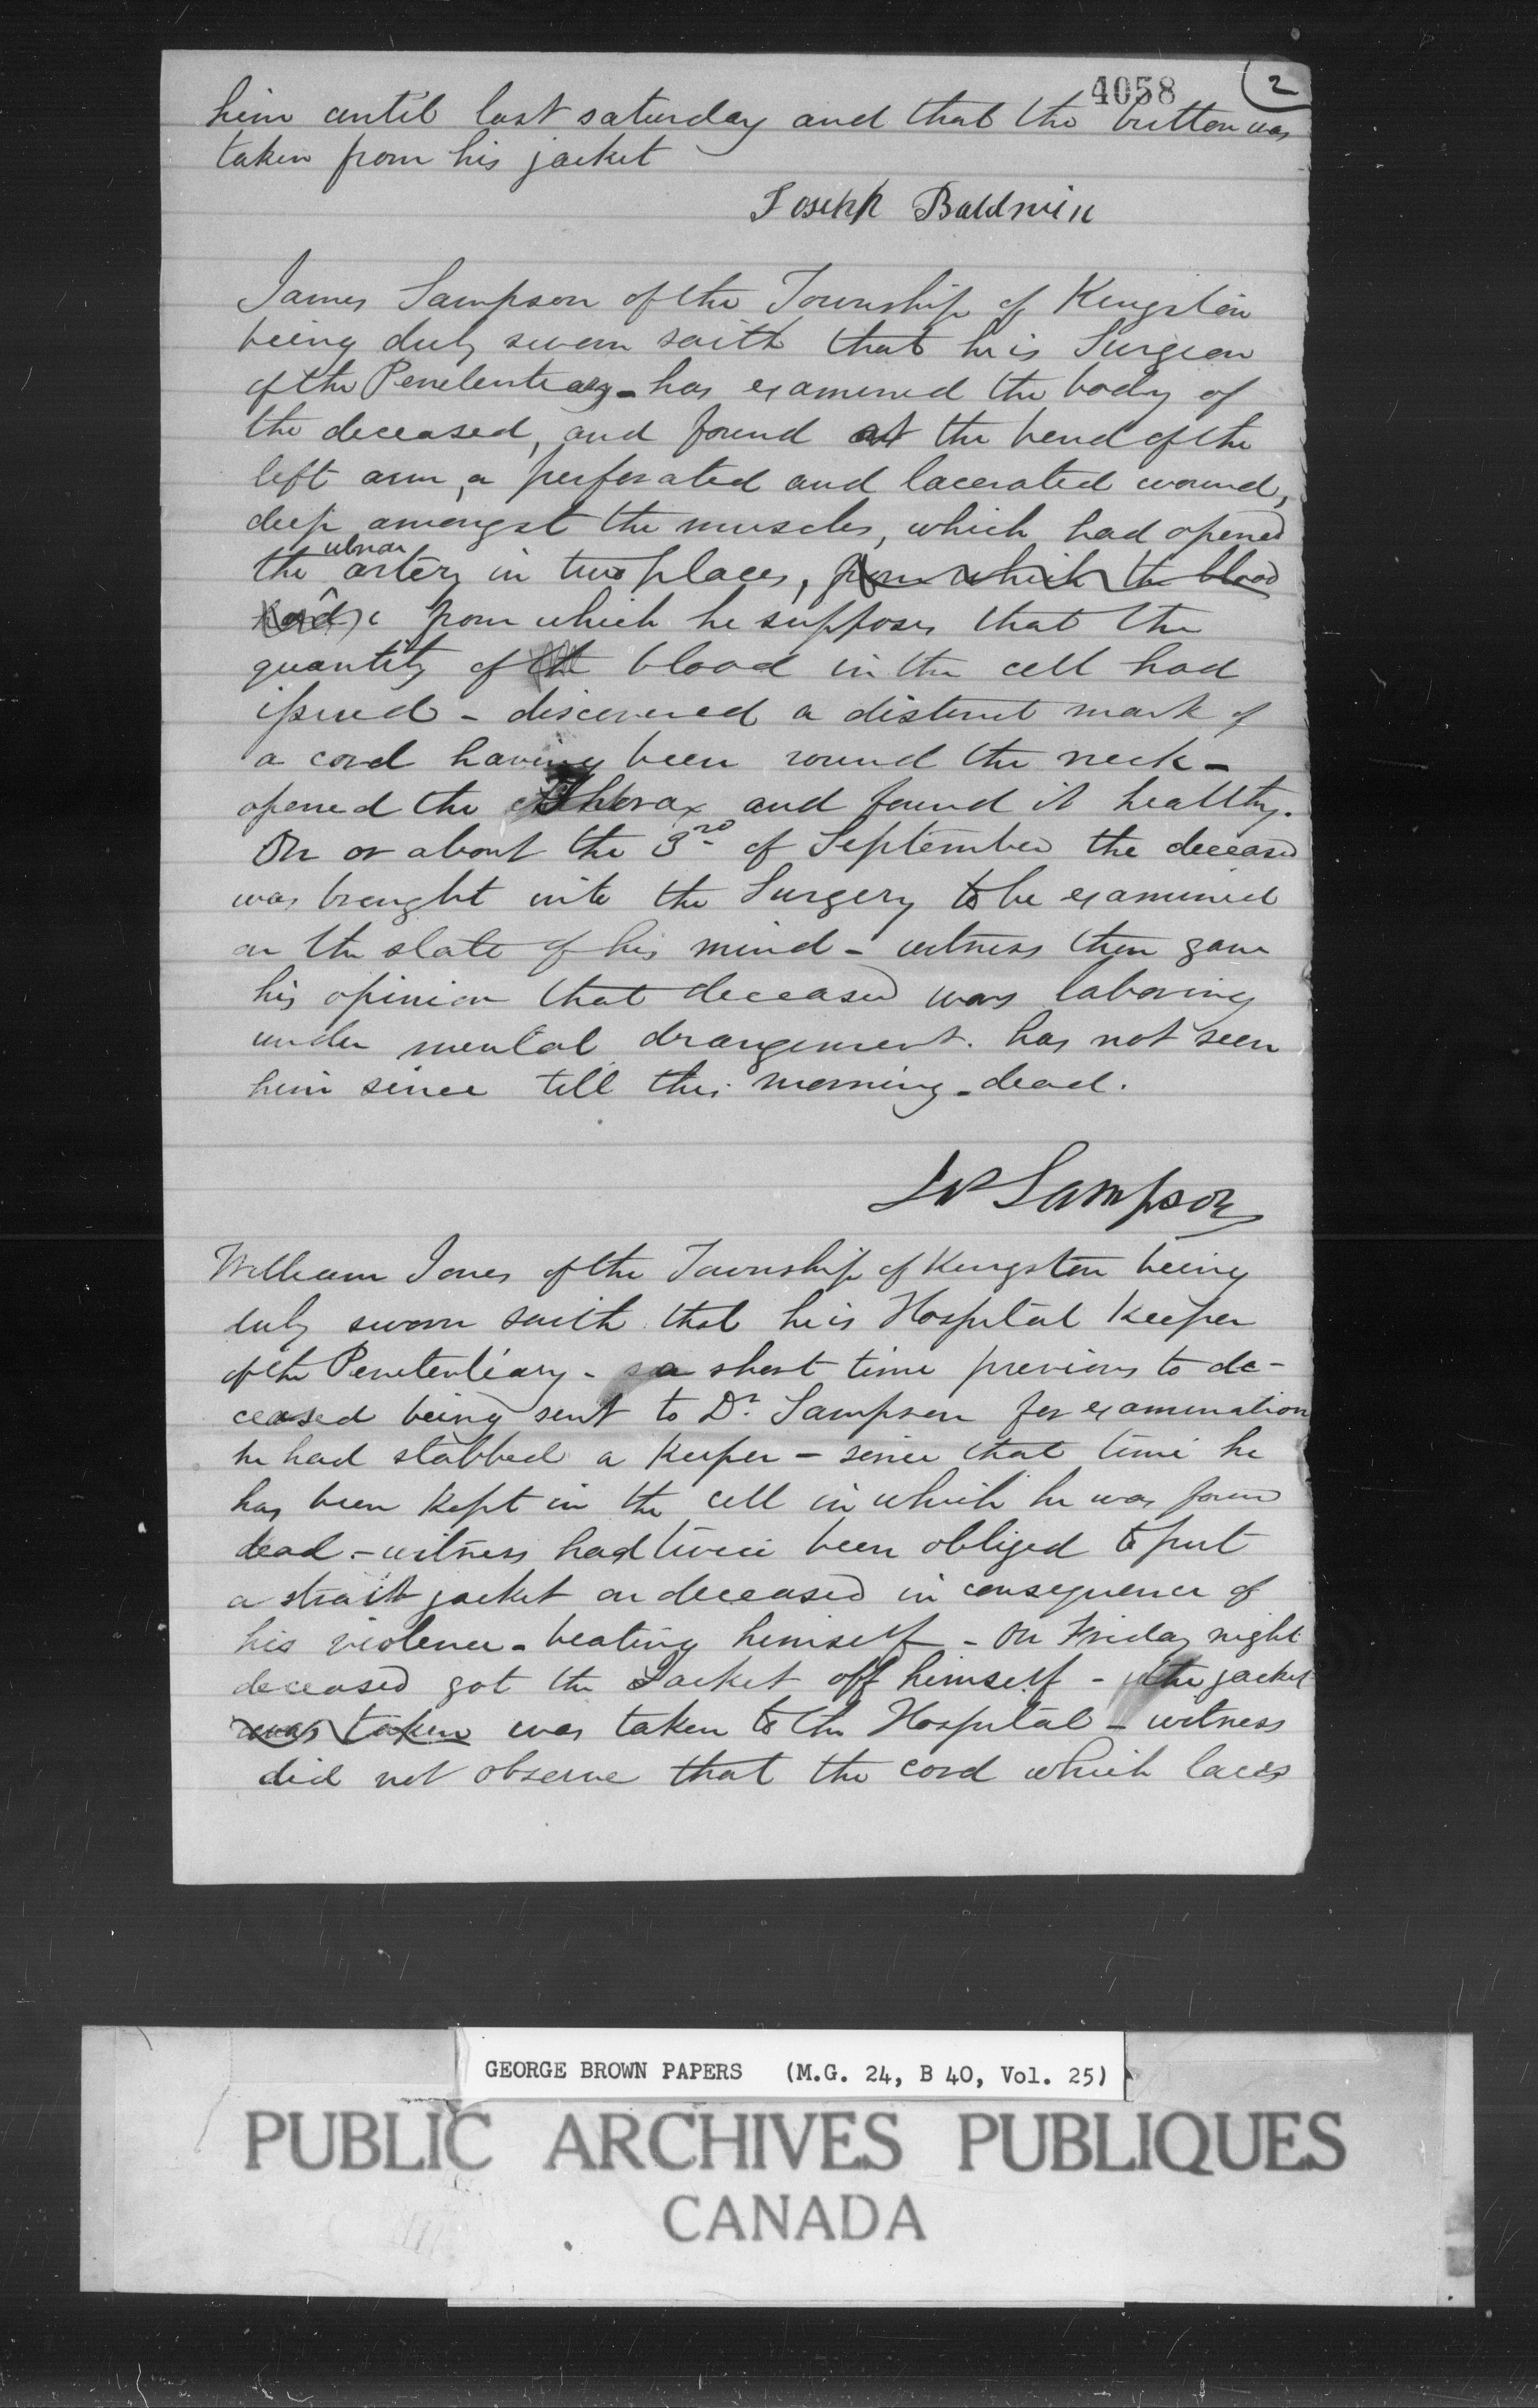 4058
2
him until last saturday and that the button was
taken from his jacket
Joseph Baldwin
James Sampson of the Township of Kingston
being duly sworn saith that he is Surgeon
of the Penetentiary - has examined the body of
the deceased, and found at the bend of the
left arm, a perforated and lacerated wound,
deep amongst the muscles, which had opened
ulnar
the artery in two places, from which the blood
had from which he supposes that the
quantity of blood in the cell had
issued - discovered a distinct mark of
a cord having been round the neck -
opened the Thorax and found it healthy.
On or about the 3rd of September the deceased
was brought into the Surgery to be examined
on the state of his mind - witness then gave
his opinion that deceased was laboring
under mental derangement. has not seen
him since till this morning - dead.
Js Sampson
William Jones of the Township of Kingston being
duly sworn saith that he is Hospital Keeper
of the Penetentiary - a short time previous to de-
ceased being sent to Dr. Sampson for examination
he had stabbed a Keeper - since that time he
has been kept in the cell in which he was found
dead - witness had twice been obliged to put
a strait jacket on deceased in consequence of
his violence - beating himself - On Friday night
deceased got the Jacket off himself - the jacket
was taken was taken to the Hospital - witness
did not observe that the cord which laces
GEORGE BROWN PAPERS (M.G. 24, B 40, Vol. 25)
PUBLIC ARCHIVES PUBLIQUES
CANADA